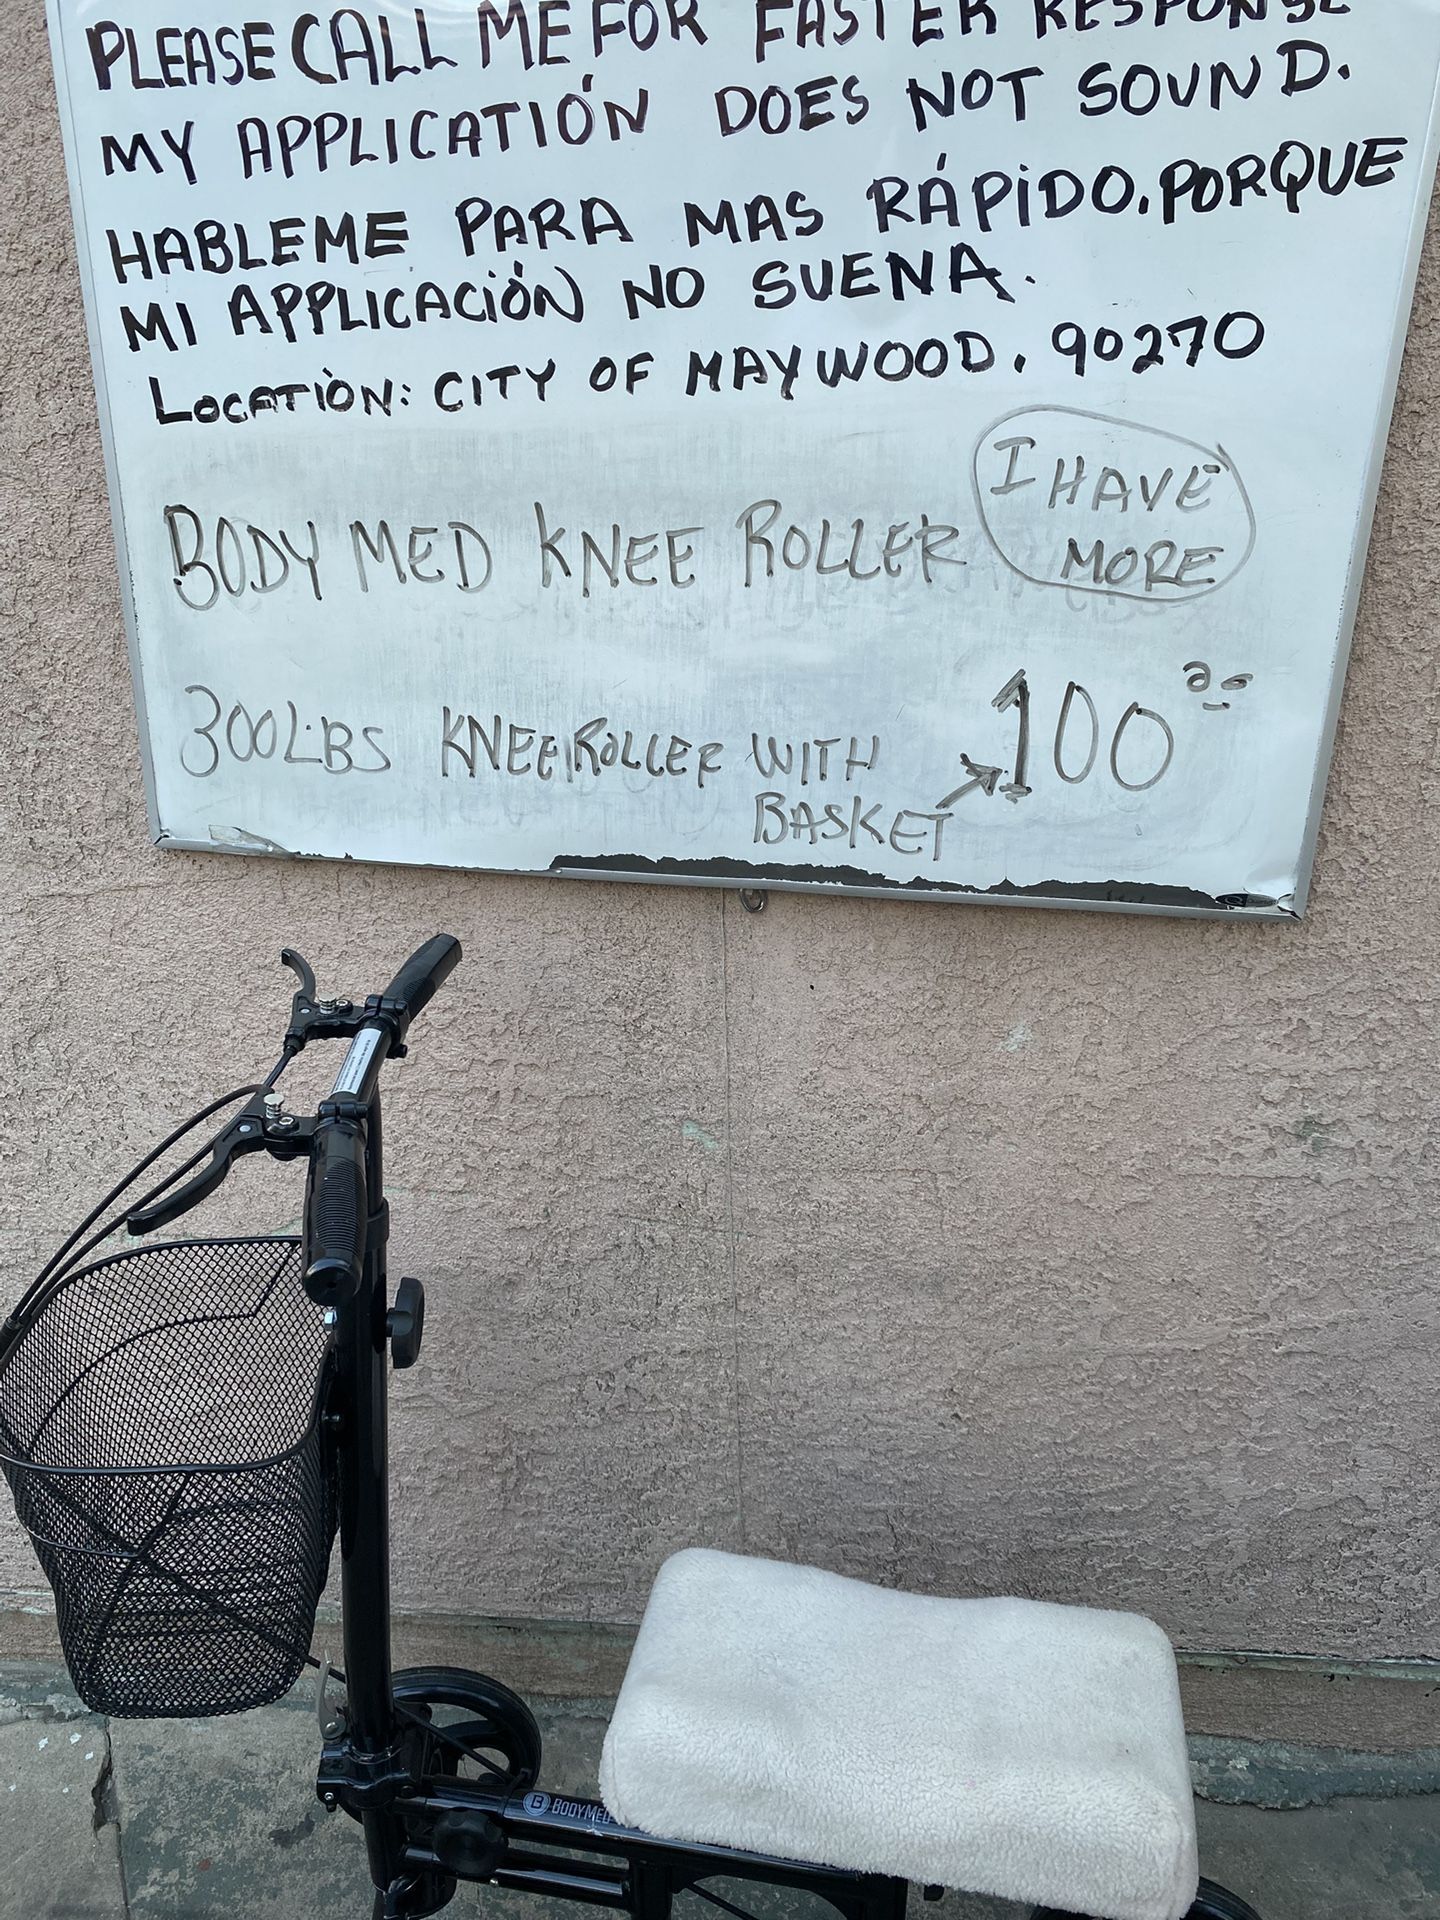 PLEASE CALL ME FOR FASTER RESPONSE
MY APPLICATIÓN DOES NOT SOUND.
HABLEME PARA MAS RÁPIDO. PORQUE
MI APPLICACIÓN NO SUENA.
LOCATIÒN: CITY OF MAYWOOD. 90270
I HAVE
MORE
BODY MED KNEE ROLLER
300LBS KNEE ROLLER WITH
BASKET
100
B BODYMED